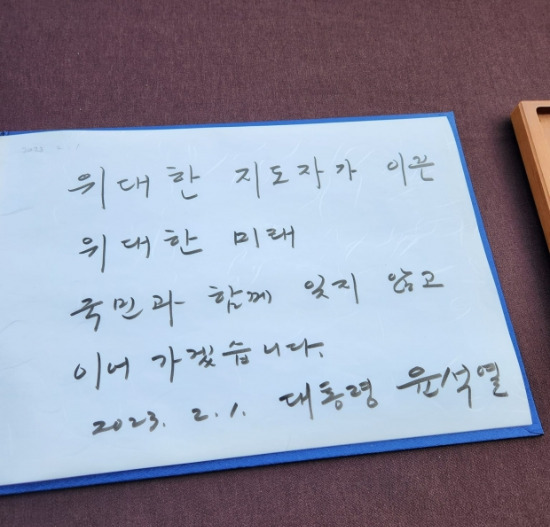 위대한 지도자가 이끈
위대한 미래
국민과 함께 잊지 않고
이어 가겠습니다.
2023. 2. 1. 대통령 윤석열